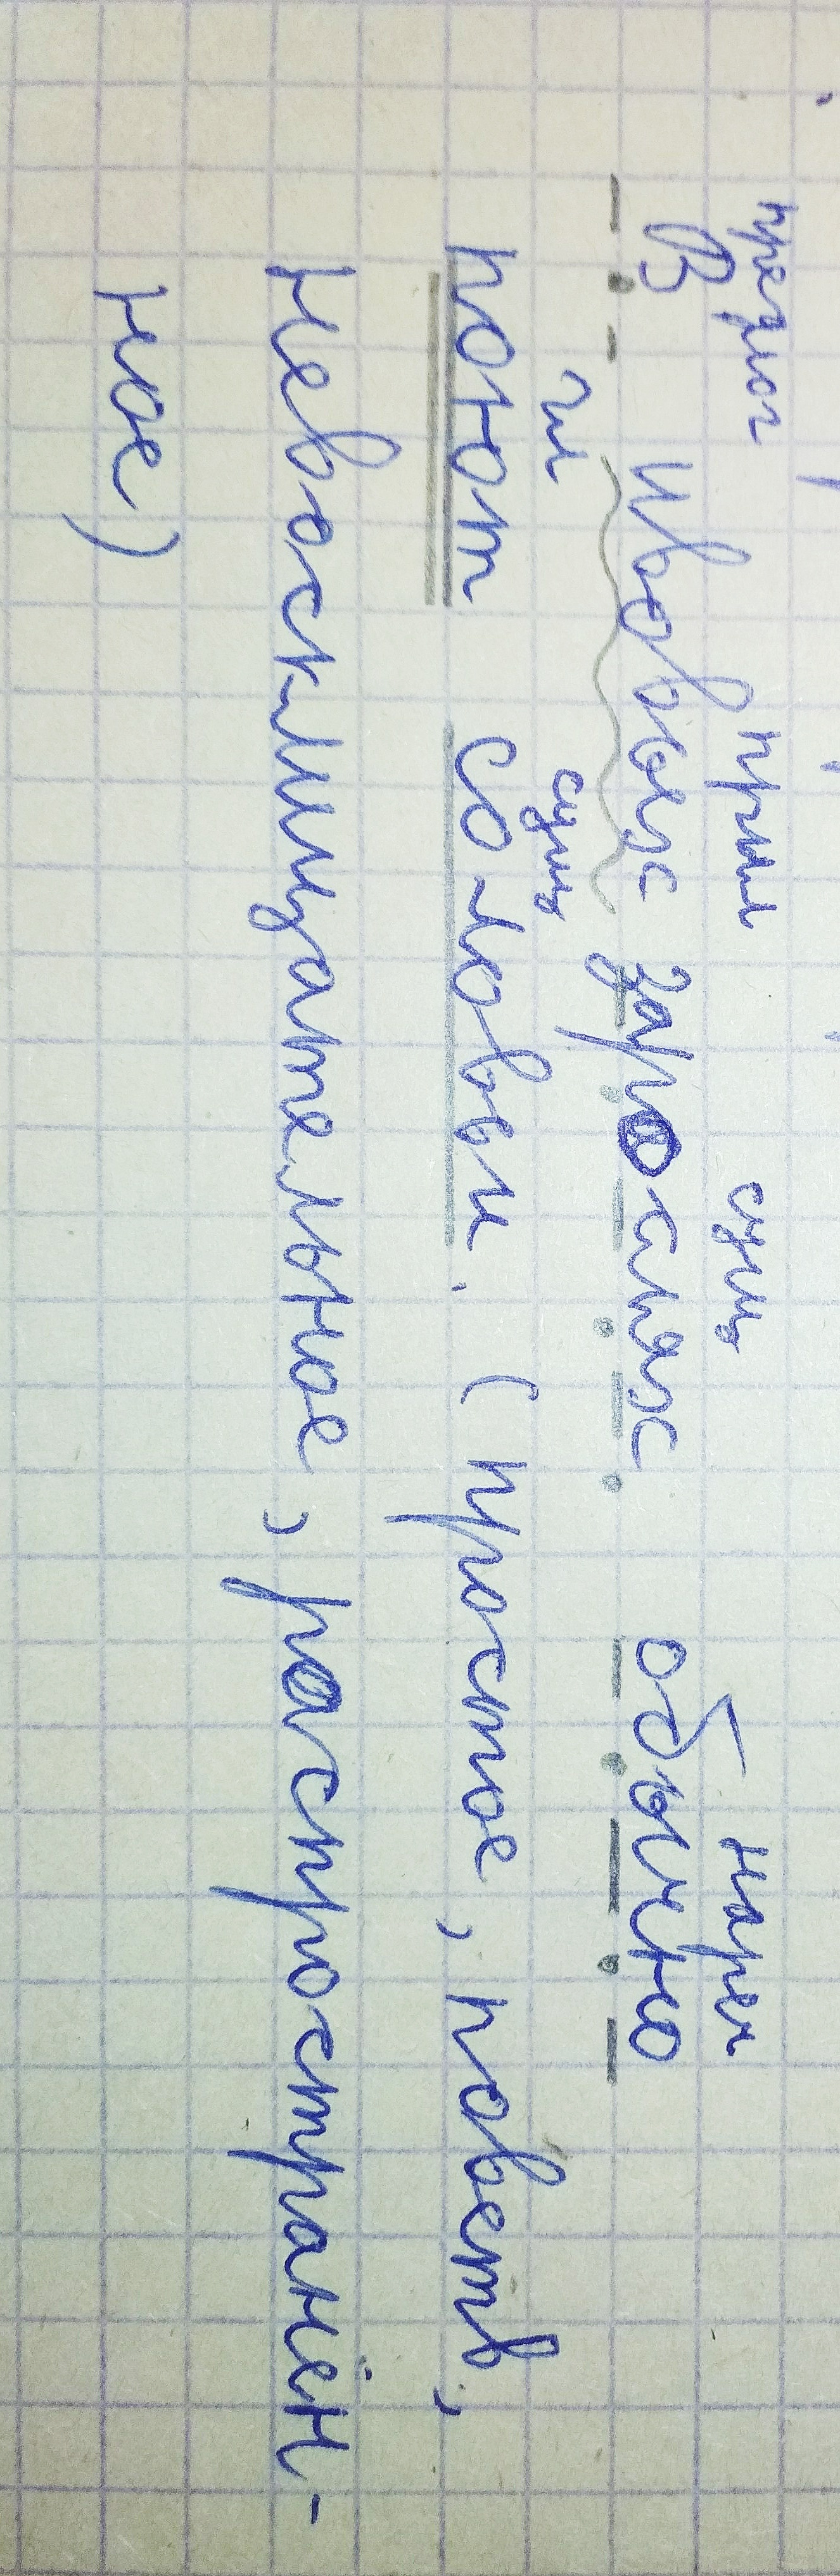 предлог прил сущ нареч
В ивовых зарослях обычно
гл сущ
поют соловьи. (простое, повеств,
невосклицательное, распространён-
ное)